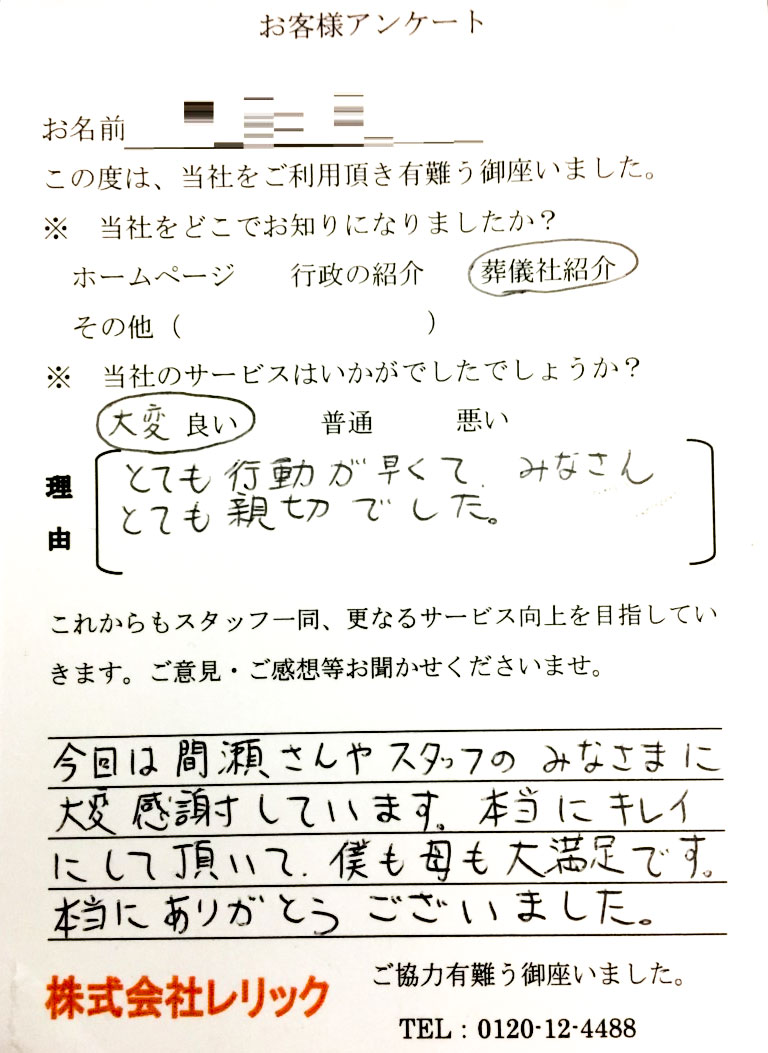 お客様アンケート
お名前
この度は、当社をご利用頂き有難う御座いました。
※ 当社をどこでお知りになりましたか？
ホームページ 行政の紹介 葬儀社紹介
その他（ ）
※ 当社のサービスはいかがでしたでしょうか？
大変 良い 普通 悪い
理由
とても行動が早くて、みなさん
とても親切でした。
これからもスタッフ一同、更なるサービス向上を目指してい
きます。ご意見・ご感想等お聞かせくださいませ。
今回は間瀬さんやスタッフのみなさまに
大変感謝しています。本当にキレイ
にして頂いて、僕も母も大満足です。
本当にありがとうございました。
ご協力有難う御座いました。
株式会社レリック
TEL：0120-12-4488